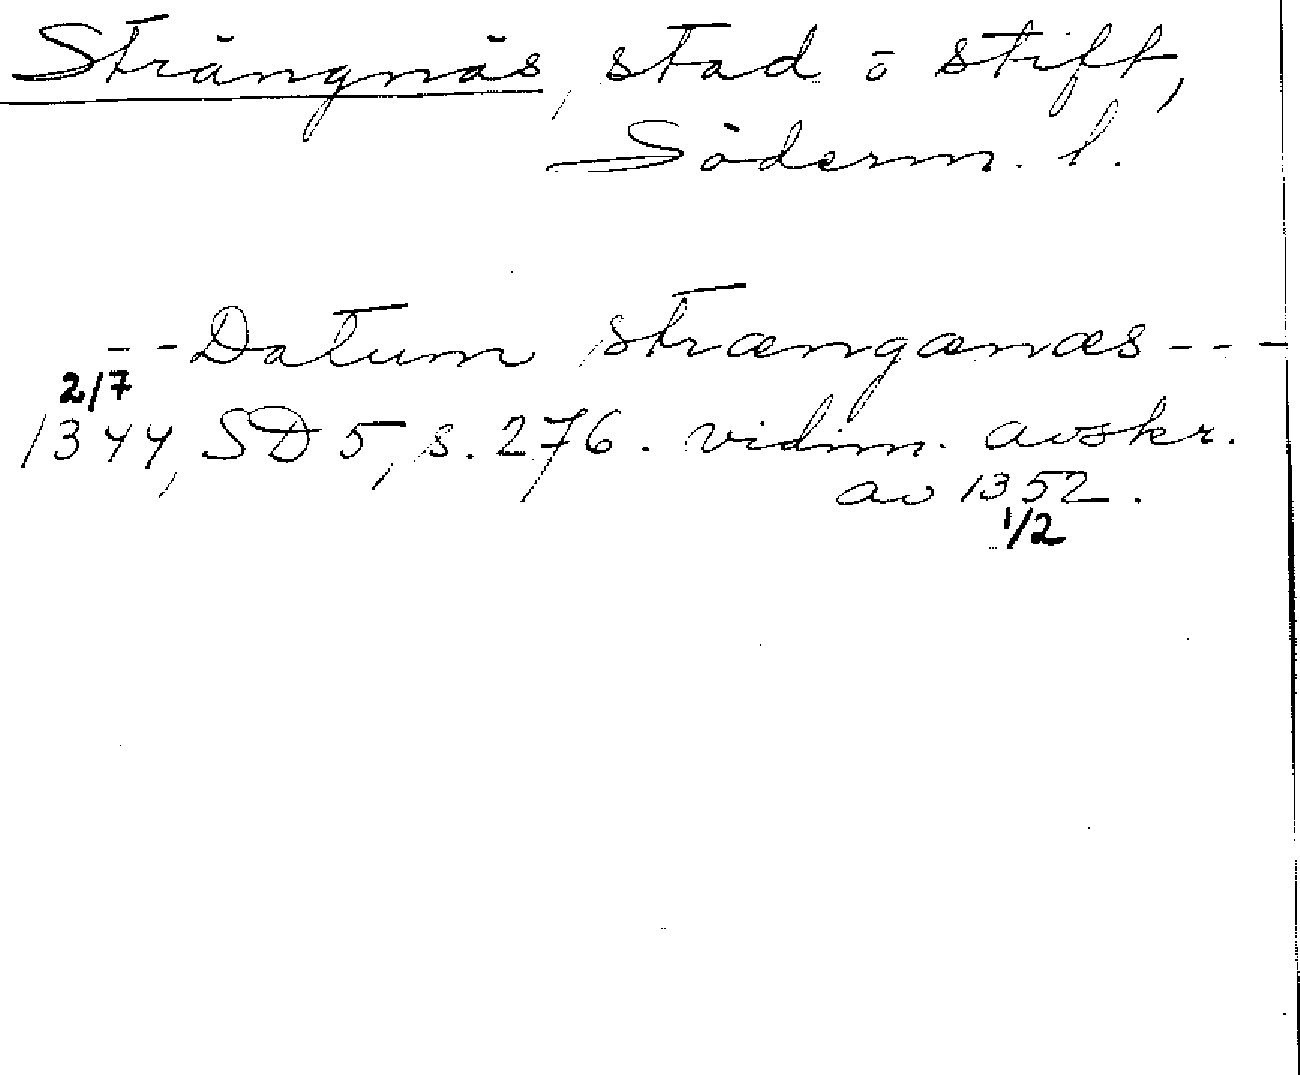 Strängnäs, stad o stift,
Söderm. l.
- - Datum strængænæs - - -
2/7
1344, SD 5, s. 276. vidim. avskr.
av 1352.
1/2